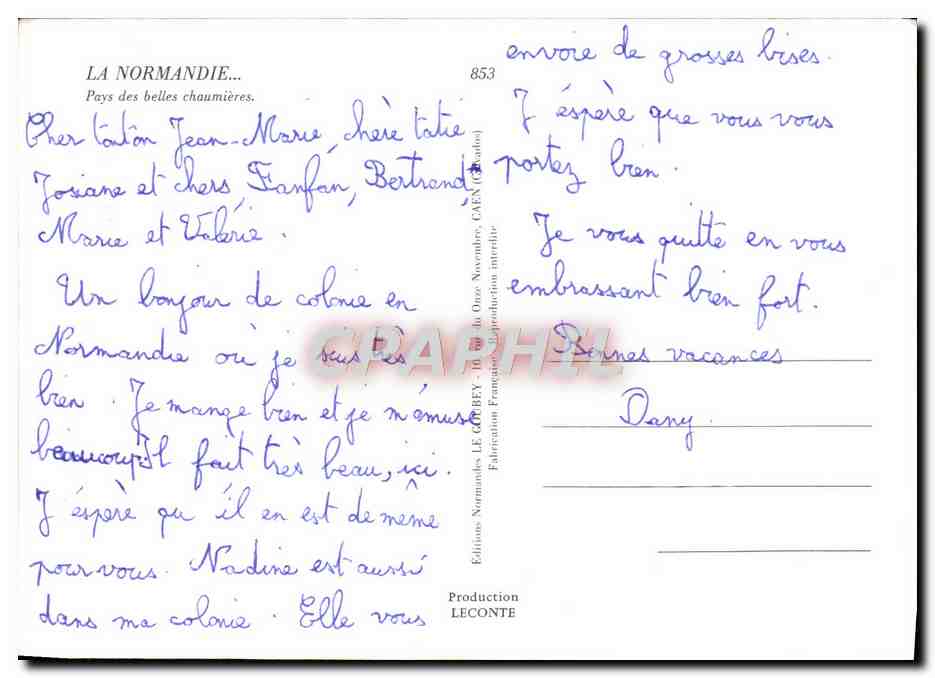 LA NORMANDIE...
Pays des belles chaumières.
Cher tonton Jean-Marie, chère tatie
Josiane et chers Fanfan, Bertrand,
Marie et Valérie.
Un bonjour de colonie en
Normandie où je suis très
bien. Je mange bien et je m'amuse
beaucoup. Il fait très beau, ici.
J'éspère qu'il en est de même
pour vous. Nadine est aussi
dans ma colonie. Elle vous
853
envoie de grosses bises.
J'éspère que vous vous
portez bien.
Je vous quitte en vous
embrassant bien fort.
Bonnes vacances
Dany.
Editions Normandes LE GOUBEY - 10, rue du Onze Novembre, CAEN (Calvados)
Fabrication Française - Reproduction interdite
Production
LECONTE
CPAPHIL